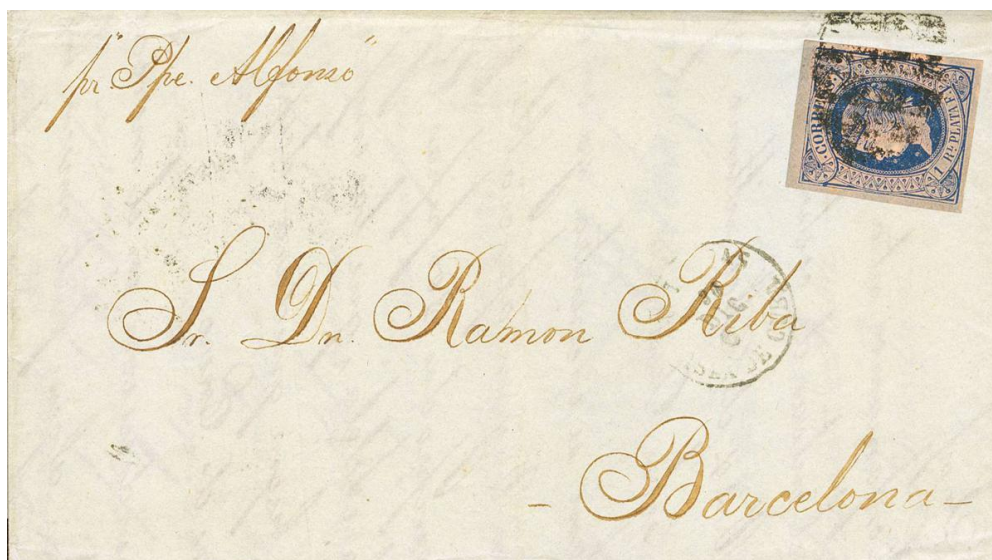 pr. "Ppe. Alfonso"
CORREOS
1 Rl PLATA F.
Sr. Dn. Ramon Riba
ISLA DE CUBA
- Barcelona -